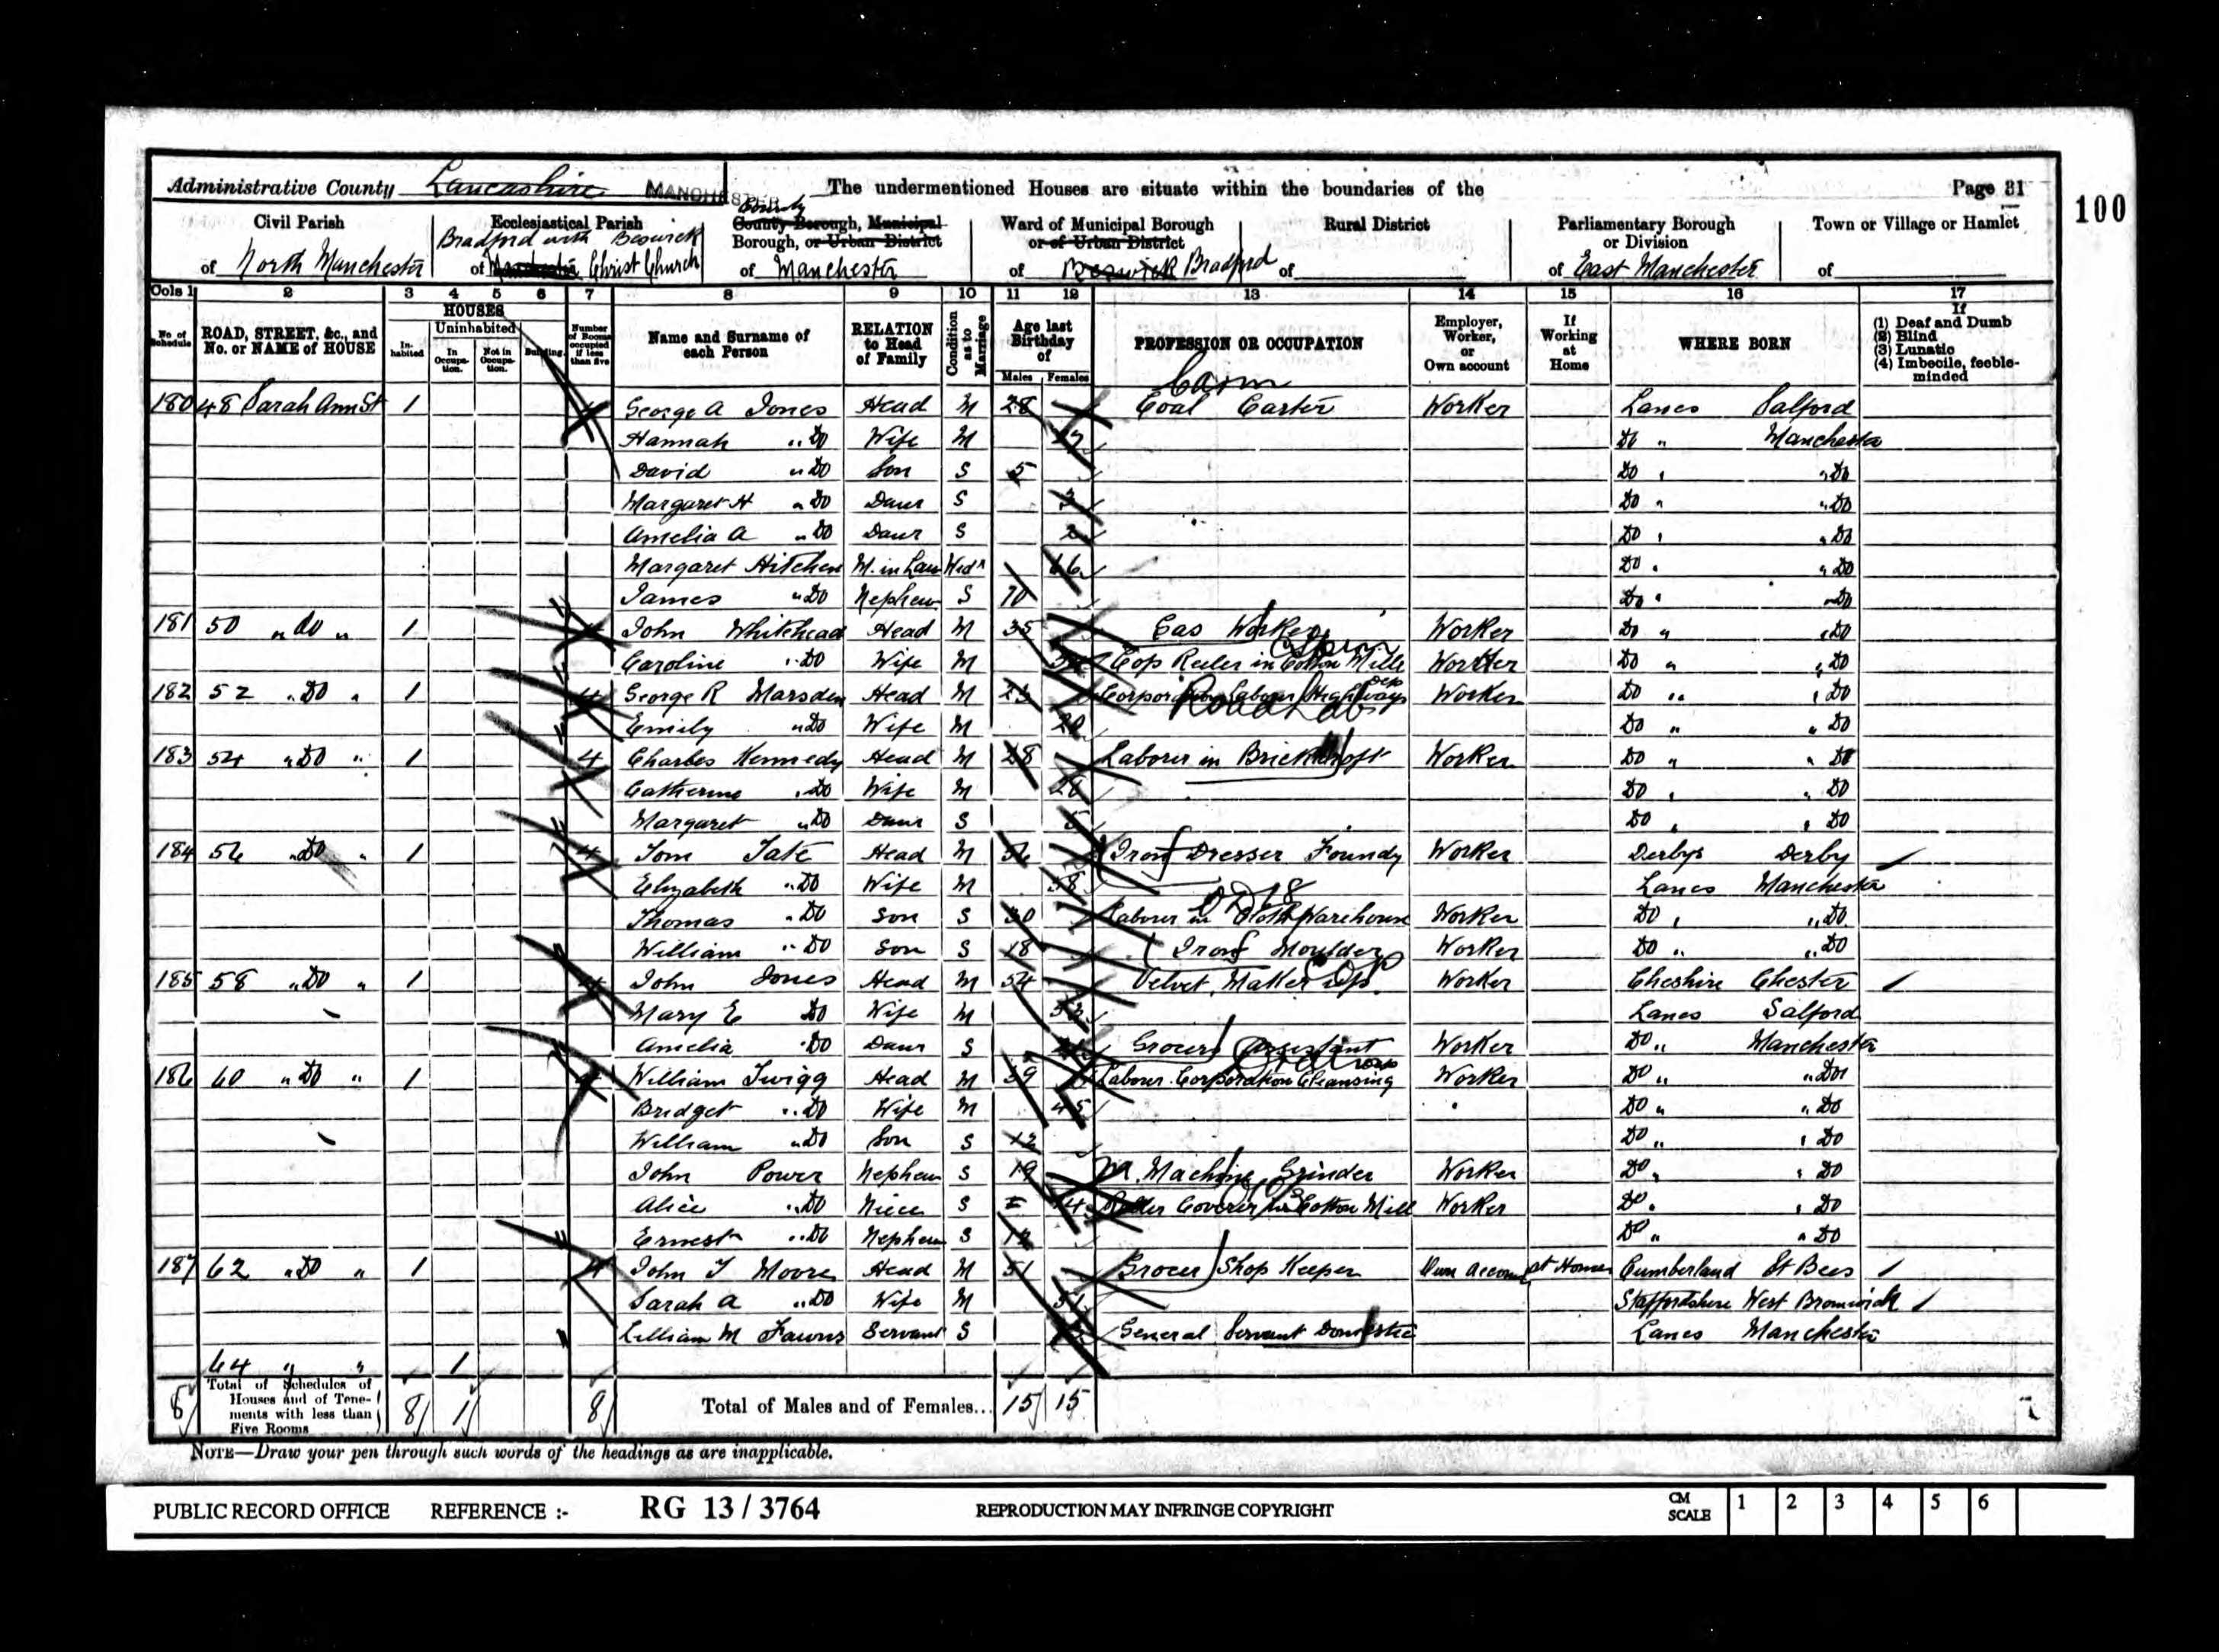 Administrative County Lancashire MANCHESTER The undermentioned Houses are situate within the boundaries of the Page 31
100
Civil Parish of North Manchester
Ecclesiastical Parish of Bradford with Beswick Christ Church
County County Borough, Municipal Borough, or Urban District of Manchester
Ward of Municipal Borough or of Urban District of Beswick Bradford
Rural District of
Parliamentary Borough or Division of East Manchester
Town or Village or Hamlet of
Cols 1 2 3 4 5 6 7 8 9 10 11 12 13 14 15 16 17
No. of Schedule
ROAD, STREET, &c., and No. or NAME of HOUSE
HOUSES
Inhabited
Uninhabited
In Occupation.
Not in Occupation.
Building.
Number of Rooms occupied if less than five
Name and Surname of each Person
RELATION to Head of Family
Condition as to Marriage
Age last Birthday of
Males Females
PROFESSION OR OCCUPATION
Employer, Worker, or Own account
If Working at Home
WHERE BORN
If
(1) Deaf and Dumb
(2) Blind
(3) Lunatic
(4) Imbecile, feeble-minded
180 48 Sarah Ann St 1 4 George A Jones Head M 28 Coal Carter Worker Lancs Salford
Hannah " Do Wife M Do " Manchester
David " Do Son S 5 Do " Do
Margaret H " Do Daur S 3 Do " " Do
Amelia A " Do Daur S 2 Do " Do
Margaret Hitchen M. in Law Wid 66 Do " Do
James " Do Nephew S 10 Do " Do
181 50 " do " 1 4 John Whitehead Head M 35 Gas Worker Worker Do " " Do
Caroline " Do Wife M Cop Reeler in Cotton Mill Worker Do " " Do
182 52 " Do " 1 4 George R Marsden Head M 23 Corporation Labour Highways Dep Worker Do " " Do
Road Lab
Emily " Do Wife M 20 Do " " Do
183 54 " Do " 1 4 Charles Kennedy Head M 28 Laborer in Brick Croft Worker Do " " Do
Catherine " Do Wife M Do " Do
Margaret " Do Daur S Do " Do
184 56 " Do " 1 4 Tom Tate Head M 56 Iron Dresser Foundy Worker Derbys Derby
Elizabeth " Do Wife M 58 Lancs Manchester
Thomas " Do Son S 30 Laborer in Cloth Warehouse Worker Do " Do
William " Do Son S 18 Iron Moulder Worker Do " " Do
185 58 " Do " 1 4 John Jones Head M 54 Velvet Maker Worker Cheshire Chester
Mary E Do Wife M Lancs Salford
Amelia " Do Daur S Grocers Assistant Worker Do " Manchester
186 60 " Do " 1 4 William Twigg Head M 39 Laborer Corporation Cleansing Worker Do " " Do
Bridget " Do Wife M 45 Do " " Do
William " Do Son S 12 Do " Do
John Power Nephew S 19 Machine Grinder Worker Do " Do
Alice " Do Niece S 14 Roller Coverer in Cotton Mill Worker Do " Do
Ernest " Do Nephew S 12 Do " " Do
187 62 " Do " 1 4 John T Moore Head M 51 Grocer Shop Keeper Own Account at Home Cumberland St Bees
Sarah A " Do Wife M 51 Staffordshire West Bromwich
Lillian M Fawns Servant S General Servant Domestic Lancs Manchester
64 " " 1
8 Total of Schedules of Houses and of Tenements with less than Five Rooms 8 1 8 Total of Males and of Females... 15 15
NOTE—Draw your pen through such words of the headings as are inapplicable.
PUBLIC RECORD OFFICE REFERENCE :- RG 13 / 3764 REPRODUCTION MAY INFRINGE COPYRIGHT CM SCALE 1 2 3 4 5 6